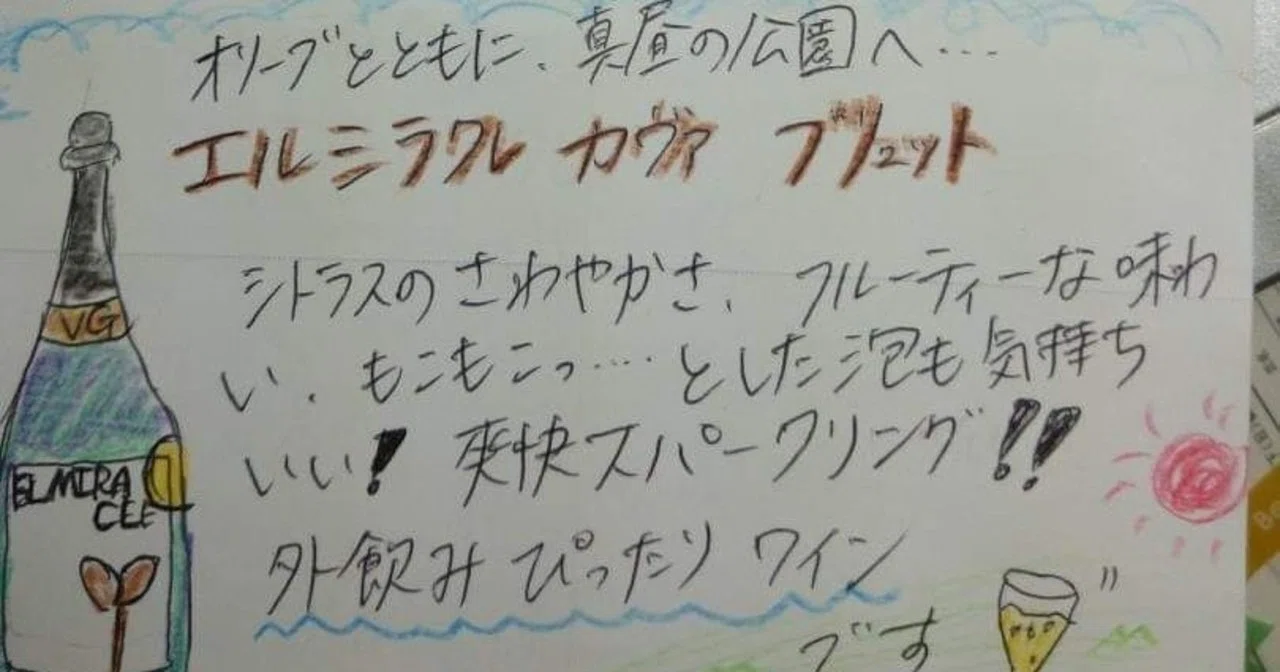 オリーブとともに、真昼の公園へ...
エルミラクレ カヴァ ブリュット
シトラスのさわやかさ、フルーティーな味わ
い、もこもこっ.... とした泡も気持ち
いい! 爽快スパークリング!!
外飲みぴったりワイン
です
VG
ELMIRA
CLE